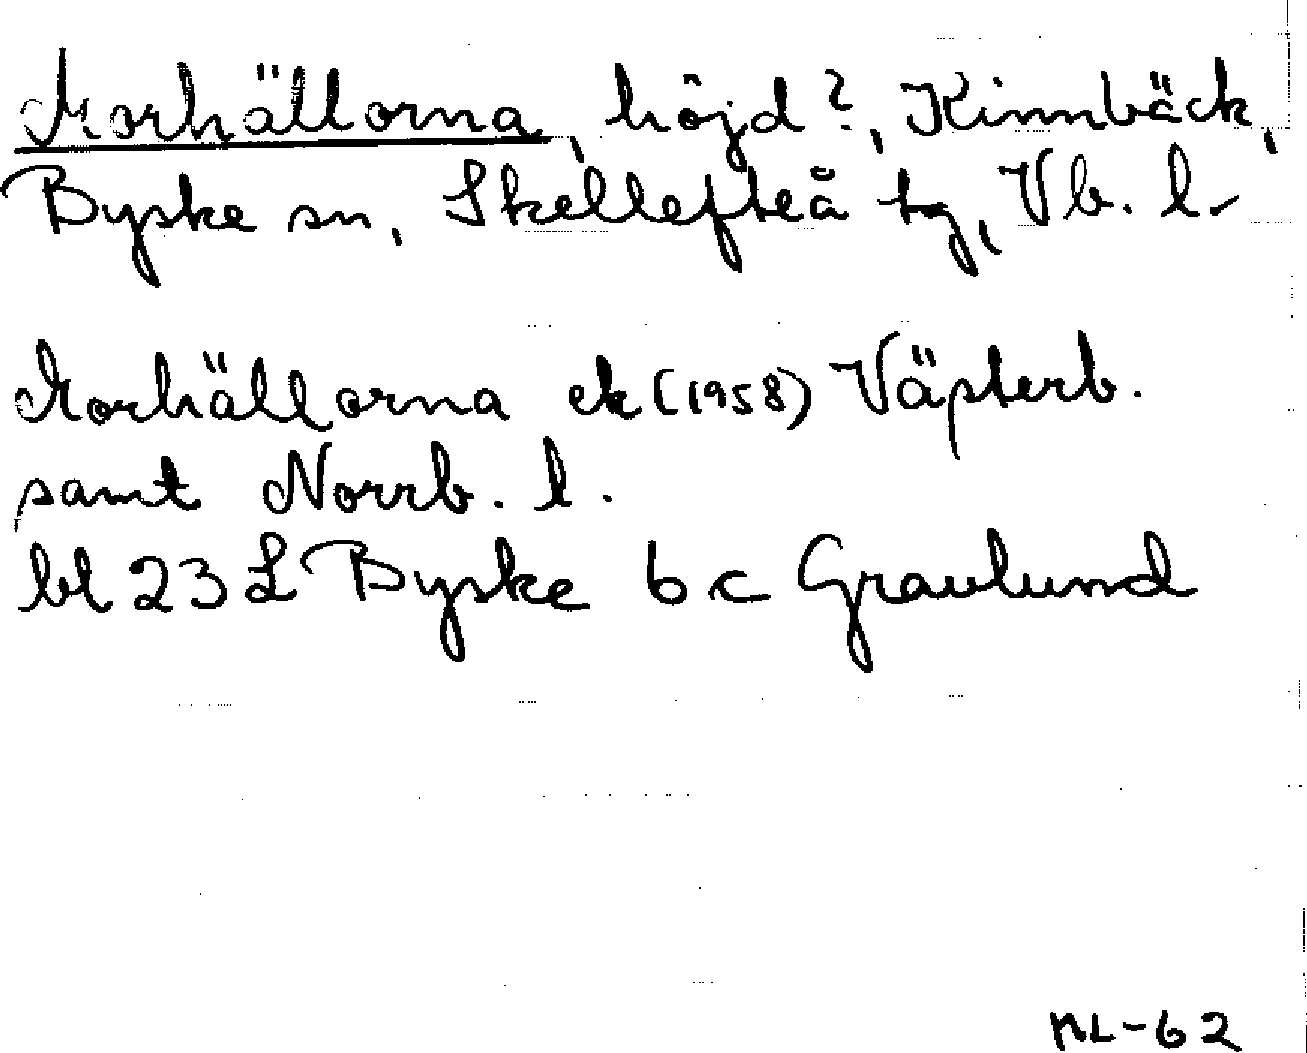 Morhällorna, höjd?, Kinnbäck,
Byske sn, Skellefteå tg, Vb. l.
Morhällorna ek (1958) Västerb.
samt Norrb. l.
bl 23 L Byske 6 c Gravlund
NL-62